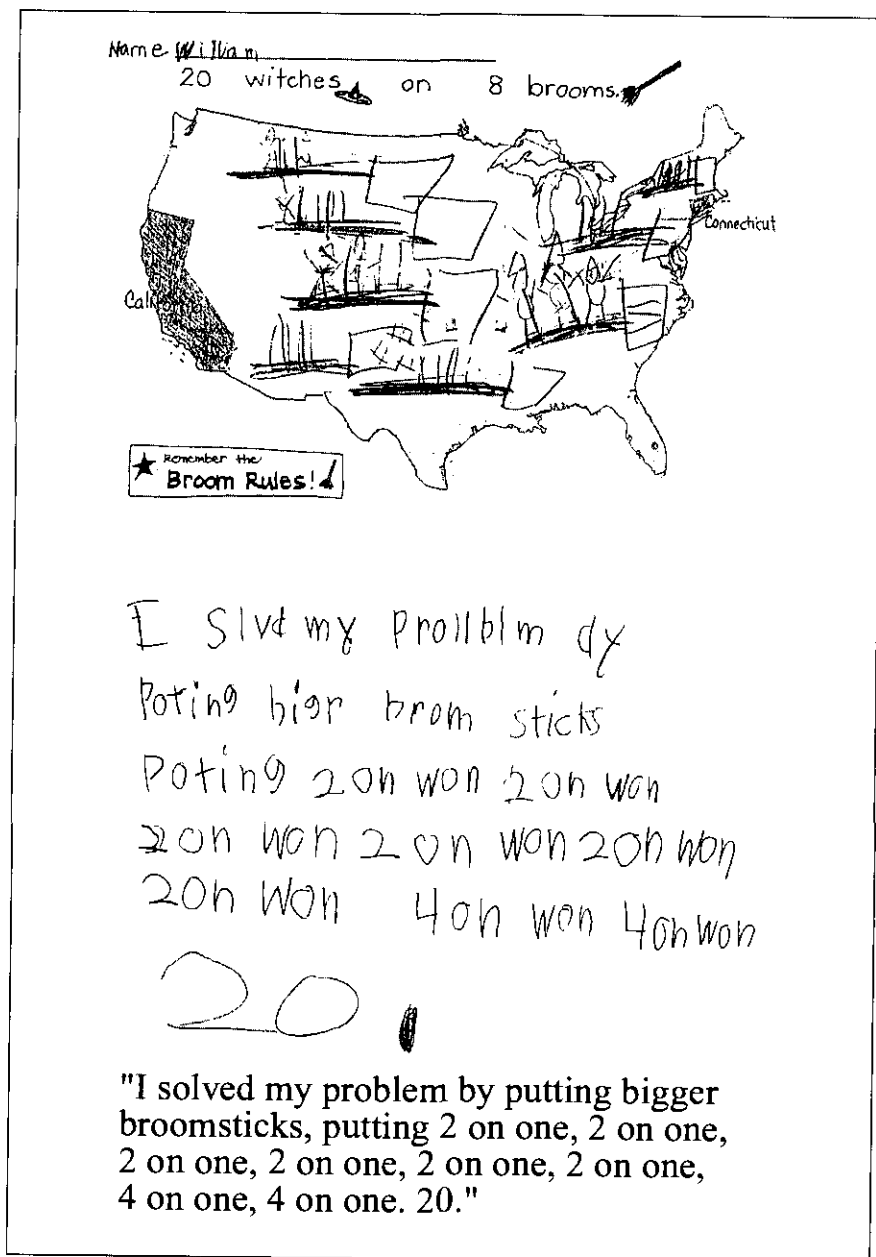 Name William
20 witches on 8 brooms.
Connecticut
California
Remember the
Broom Rules!
I Slvd my Prollblm dy
Poting bigr brom sticks
Poting 2 on won 2 on won
2 on won 2 on won 2 on won
2 on won 4 on won 4 on won
20.
"I solved my problem by putting bigger
broomsticks, putting 2 on one, 2 on one,
2 on one, 2 on one, 2 on one, 2 on one,
4 on one, 4 on one. 20."